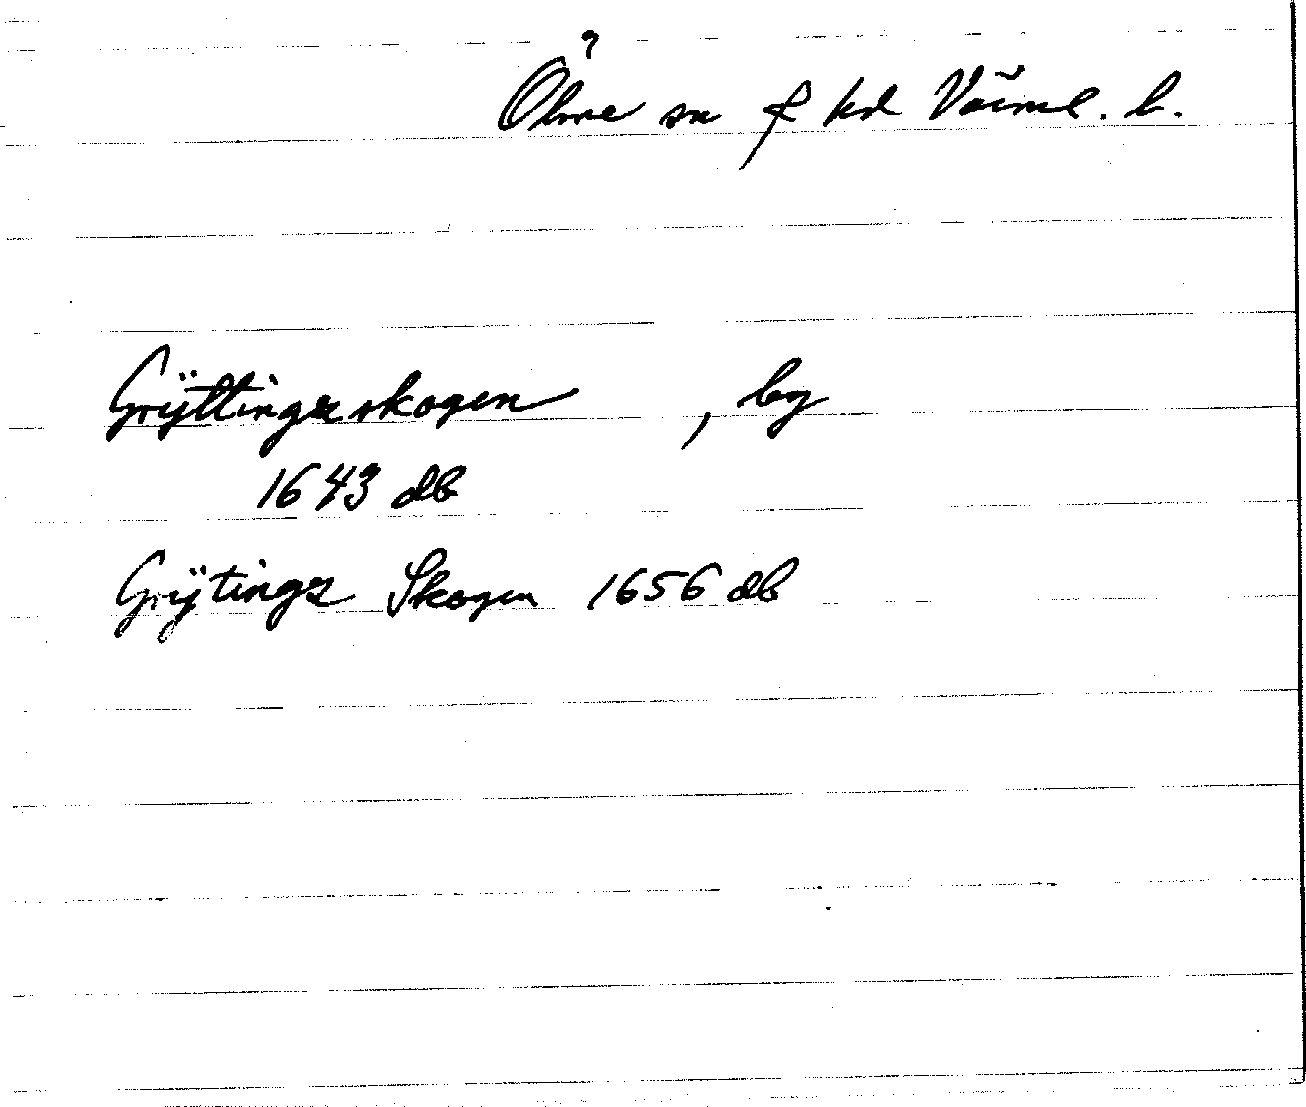 ?
Ölme sn f hd Värml. l.
Grÿttingzskogen , by
1643 db
Grÿtingz Skogen 1656 db